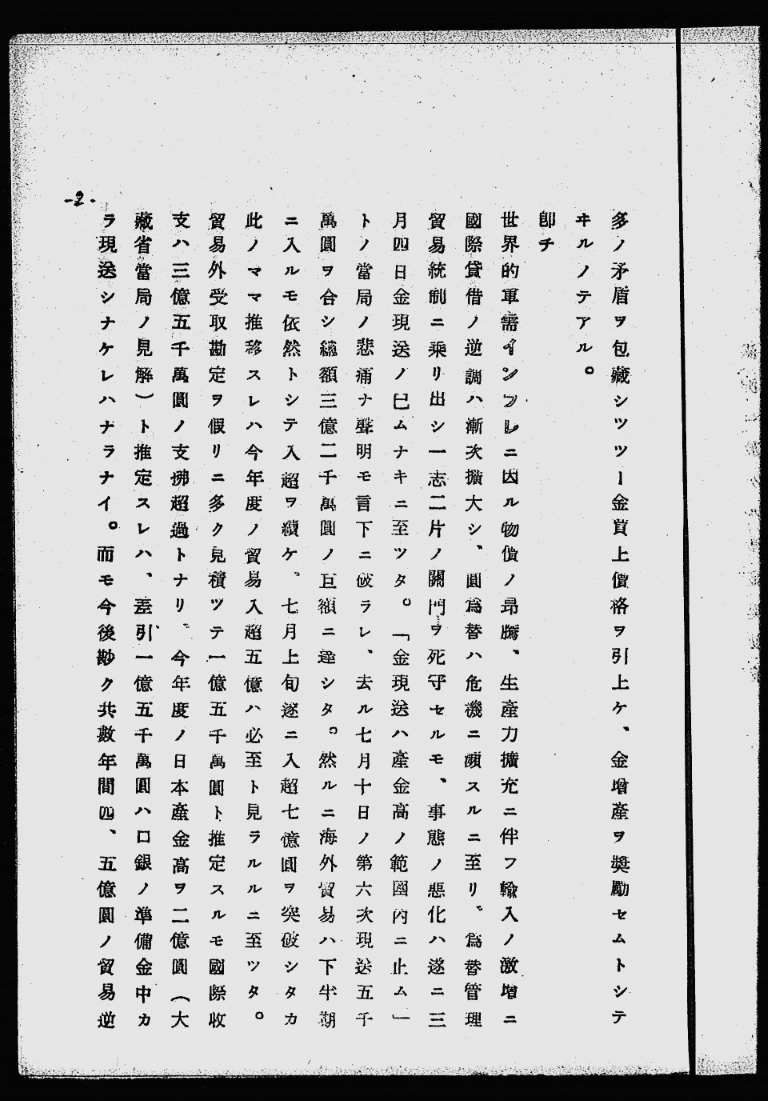 多ノ矛盾ヲ包藏シツツ一金買上價格ヲ引上ケ、金增產ヲ奬勵セムトシテ
ヰルノテアル。
卽チ
世界的軍需インフレニ因ル物價ノ昂騰、生產力擴充ニ伴フ輸入ノ激增ニ
國際貸借ノ逆調ハ漸次擴大シ、圓爲替ハ危機ニ瀕スルニ至リ、爲替管理
貿易統制ニ乘リ出シ一志二片ノ關門ヲ死守セルモ、事態ノ惡化ハ遂ニ三
月四日金現送ノ已ムナキニ至ツタ。「金現送ハ產金高ノ範圍內ニ止ム」
トノ當局ノ悲痛ナ聲明モ言下ニ破ラレ、去ル七月十日ノ第六次現送五千
萬圓ヲ合シ總額三億二千萬圓ノ巨額ニ達シタ。然ルニ海外貿易ハ下半期
ニ入ルモ依然トシテ入超ヲ續ケ、七月上旬遂ニ入超七億圓ヲ突破シタカ
此ノママ推移スレハ今年度ノ貿易入超五億ハ必至ト見ラルルニ至ツタ。
貿易外受取勘定ヲ假リニ多ク見積ツテ一億五千萬圓ト推定スルモ國際收
支ハ三億五千萬圓ノ支拂超過トナリ、今年度ノ日本產金高ヲ二億圓（大
藏省當局ノ見解）ト推定スレハ、差引一億五千萬圓ハ口銀ノ準備金中カ
ラ現送シナケレハナラナイ。而モ今後尠ク共數年間四、五億圓ノ貿易逆
-2-